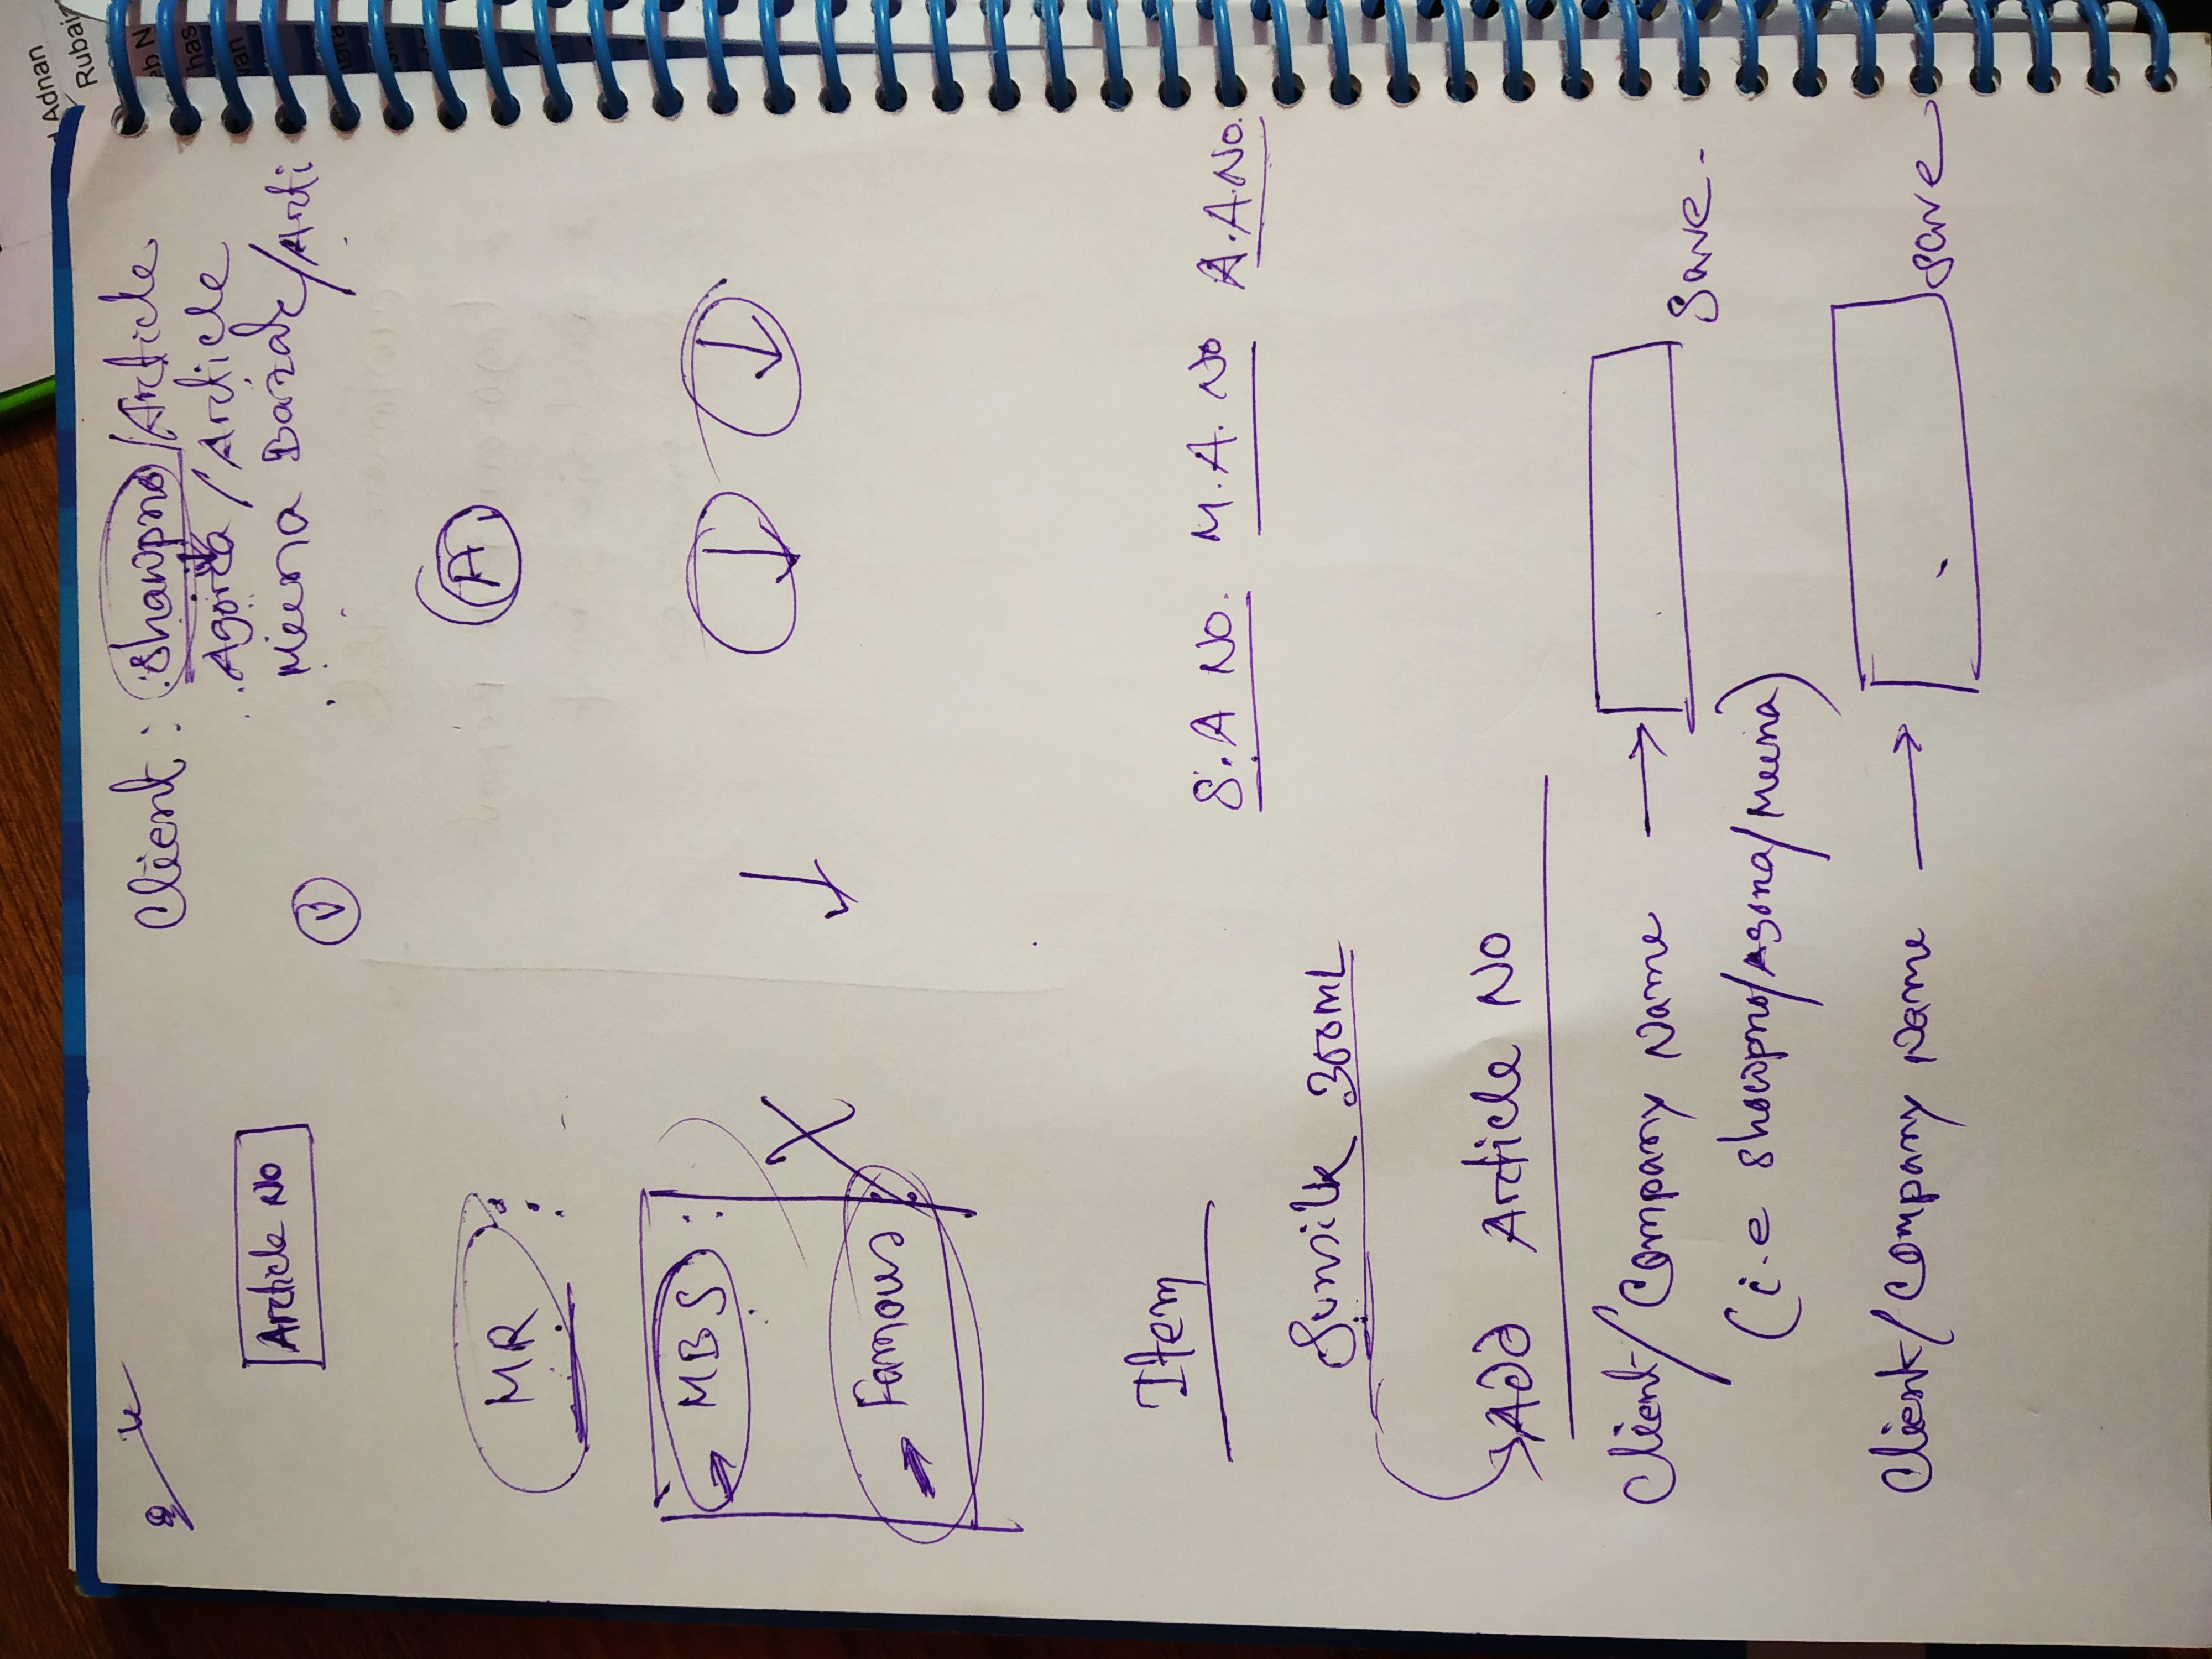 Client : Shawpno/Article
Agora / Article
Meena Bazar/Arti
Article No
A
MR :
→ MBS :
X
→ Famous :
Item
S.A No. M.A. No A.A.No.
Sunsilk 300mL
Add Article No
Client/Company Name →
Save-
(i.e Showpno/Agora/Meena)
Client/Company Name →
save
Adnan
Rubai
eb N
has